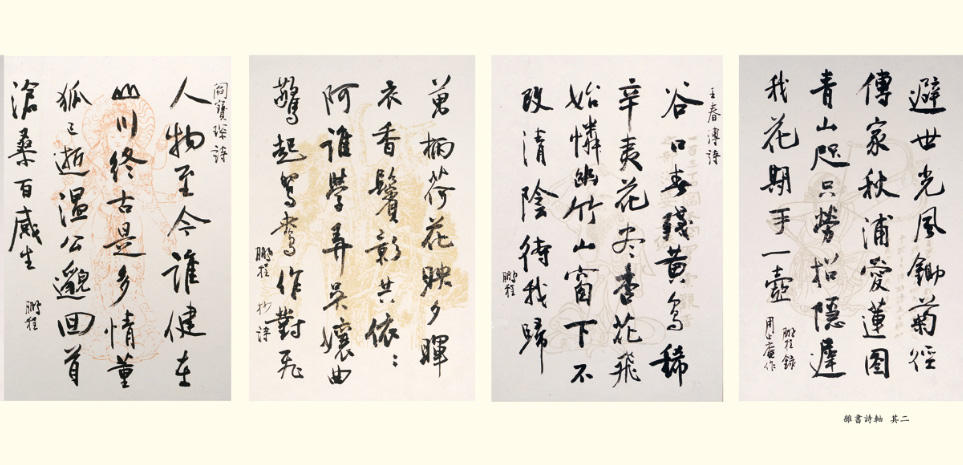 避世光風鋤菊徑
傳家秋浦愛蓮图
青山咫尺勞招隱遲
我花期手一壺
鵬程錄
王春溥詩
谷口春殘黃鳥稀
辛夷花尽杏花飛
始憐幽竹山窗下不
改清陰待我歸
鵬程
萬柄荷花映夕暉
衣香鬢影共依〻
阿誰學弄吳孃曲
驚起鴛鴦作對飛
鵬程 抄詩
閻寶琛詩
人物至今谁健在
山川終古是多情董
狐已逝溫公邈回首
滄桑百感生
鵬程
雜書詩軸 其二